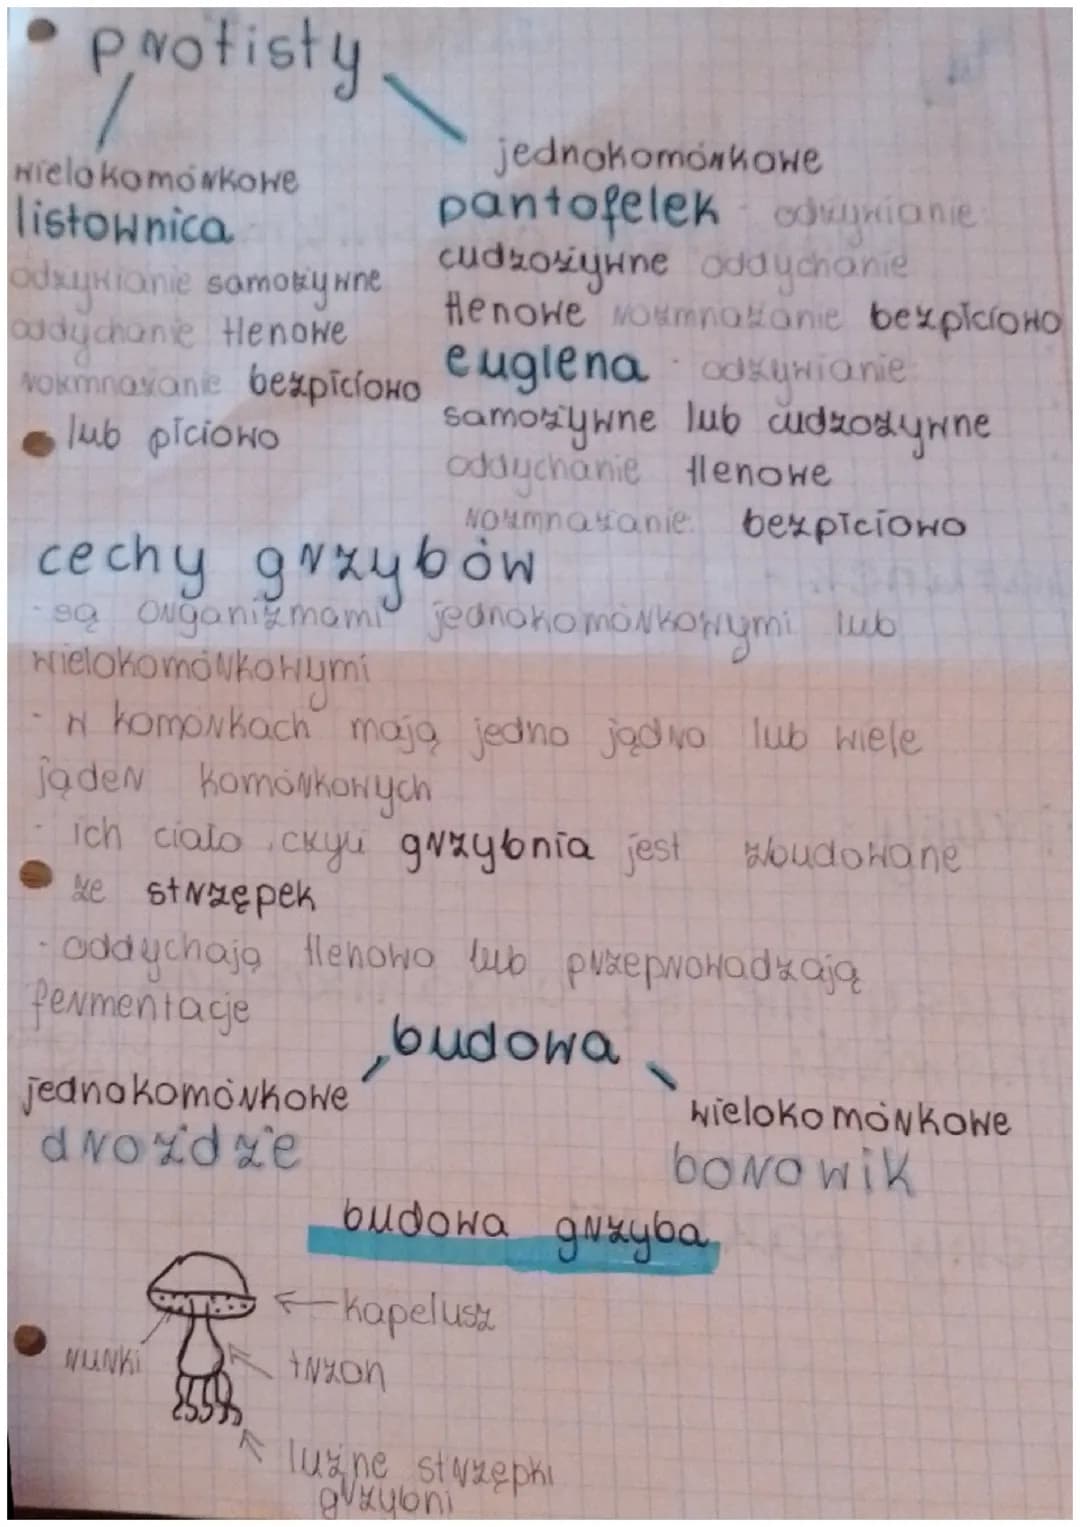 protisty
wielokomórkowe
listownica
odżywianie samożywne
oddychanie tlenowe
rozmnażanie bezpłciowo
lub płciowo
jednokomórkowe
pantofelek - odżywianie:
cudzożywne oddychanie
tlenowe rozmnażanie bezpłciowo
euglena - odżywianie:
samożywne lub cudzożywne
oddychanie tlenowe
rozmnażanie: bezpłciowo
cechy grzybów
- są organizmami jednokomórkowymi lub
wielokomórkowymi
- w komórkach mają jedno jądro lub wiele
jąder komórkowych
- ich ciało, czyli grzybnia jest zbudowane
ze strzępek
- oddychają tlenowo lub przeprowadzają
fermentacje
budowa
jednokomórkowe
drożdże
wielokomórkowe
borowik
budowa grzyba
kapelusz
rurki
trzon
luźne strzępki
grzybni